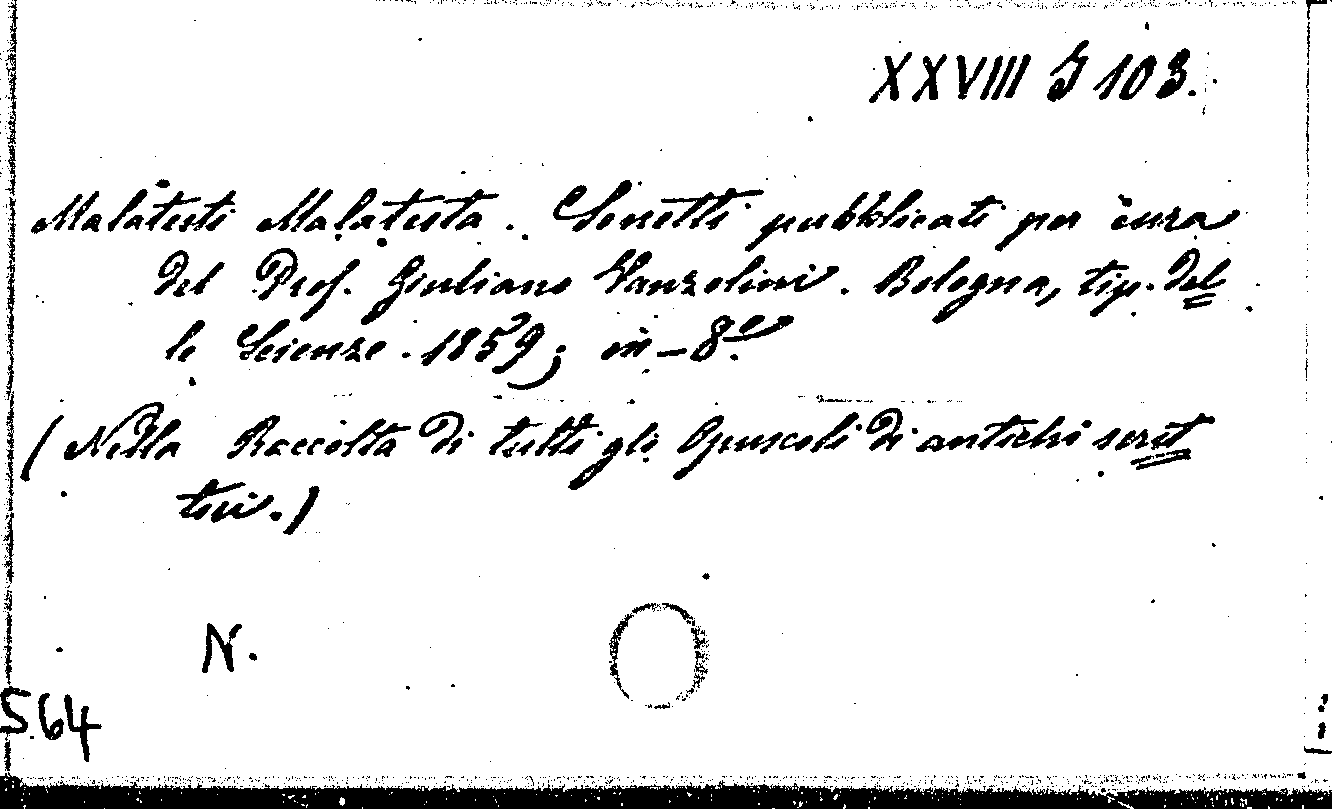 XXVIII J 103.
Malatesti Malatesta. Sonetti pubblicati per cura
del Prof. Giuliano Vanzolini. Bologna, tip. del
le Scienze. 1859; in-8.º
(Nella Raccolta di tutti gli Opuscoli di antichi scrit
tori.)
N.
564